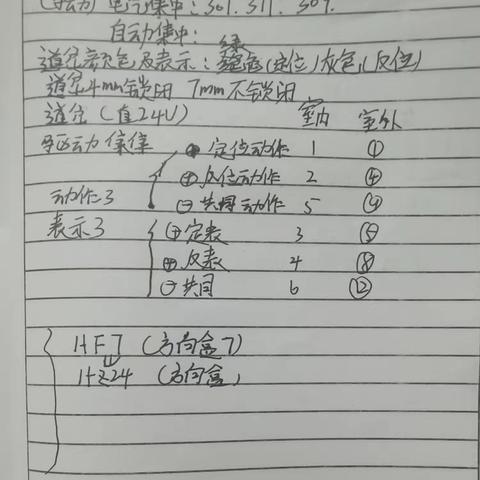 (手动) 电气集中: 301. 311. 307.
自动集中: 绿
道岔颜色及表示: 绿色(定位) 灰色(反位)
道岔4mm锁闭 7mm不锁闭
道岔 (直24V) 室内 室外
驱动
⊕ 定位动作 1 ①
动作3 ⊕ 反位动作 2 ④
⊖ 共用动作 5 ⑨
表示3 ⊕ 定表 3 ⑤
⊕ 反表 4 ⑧
⊖ 共同 6 ⑫
HF7 (方向盒7)
HZ24 (方向盒)